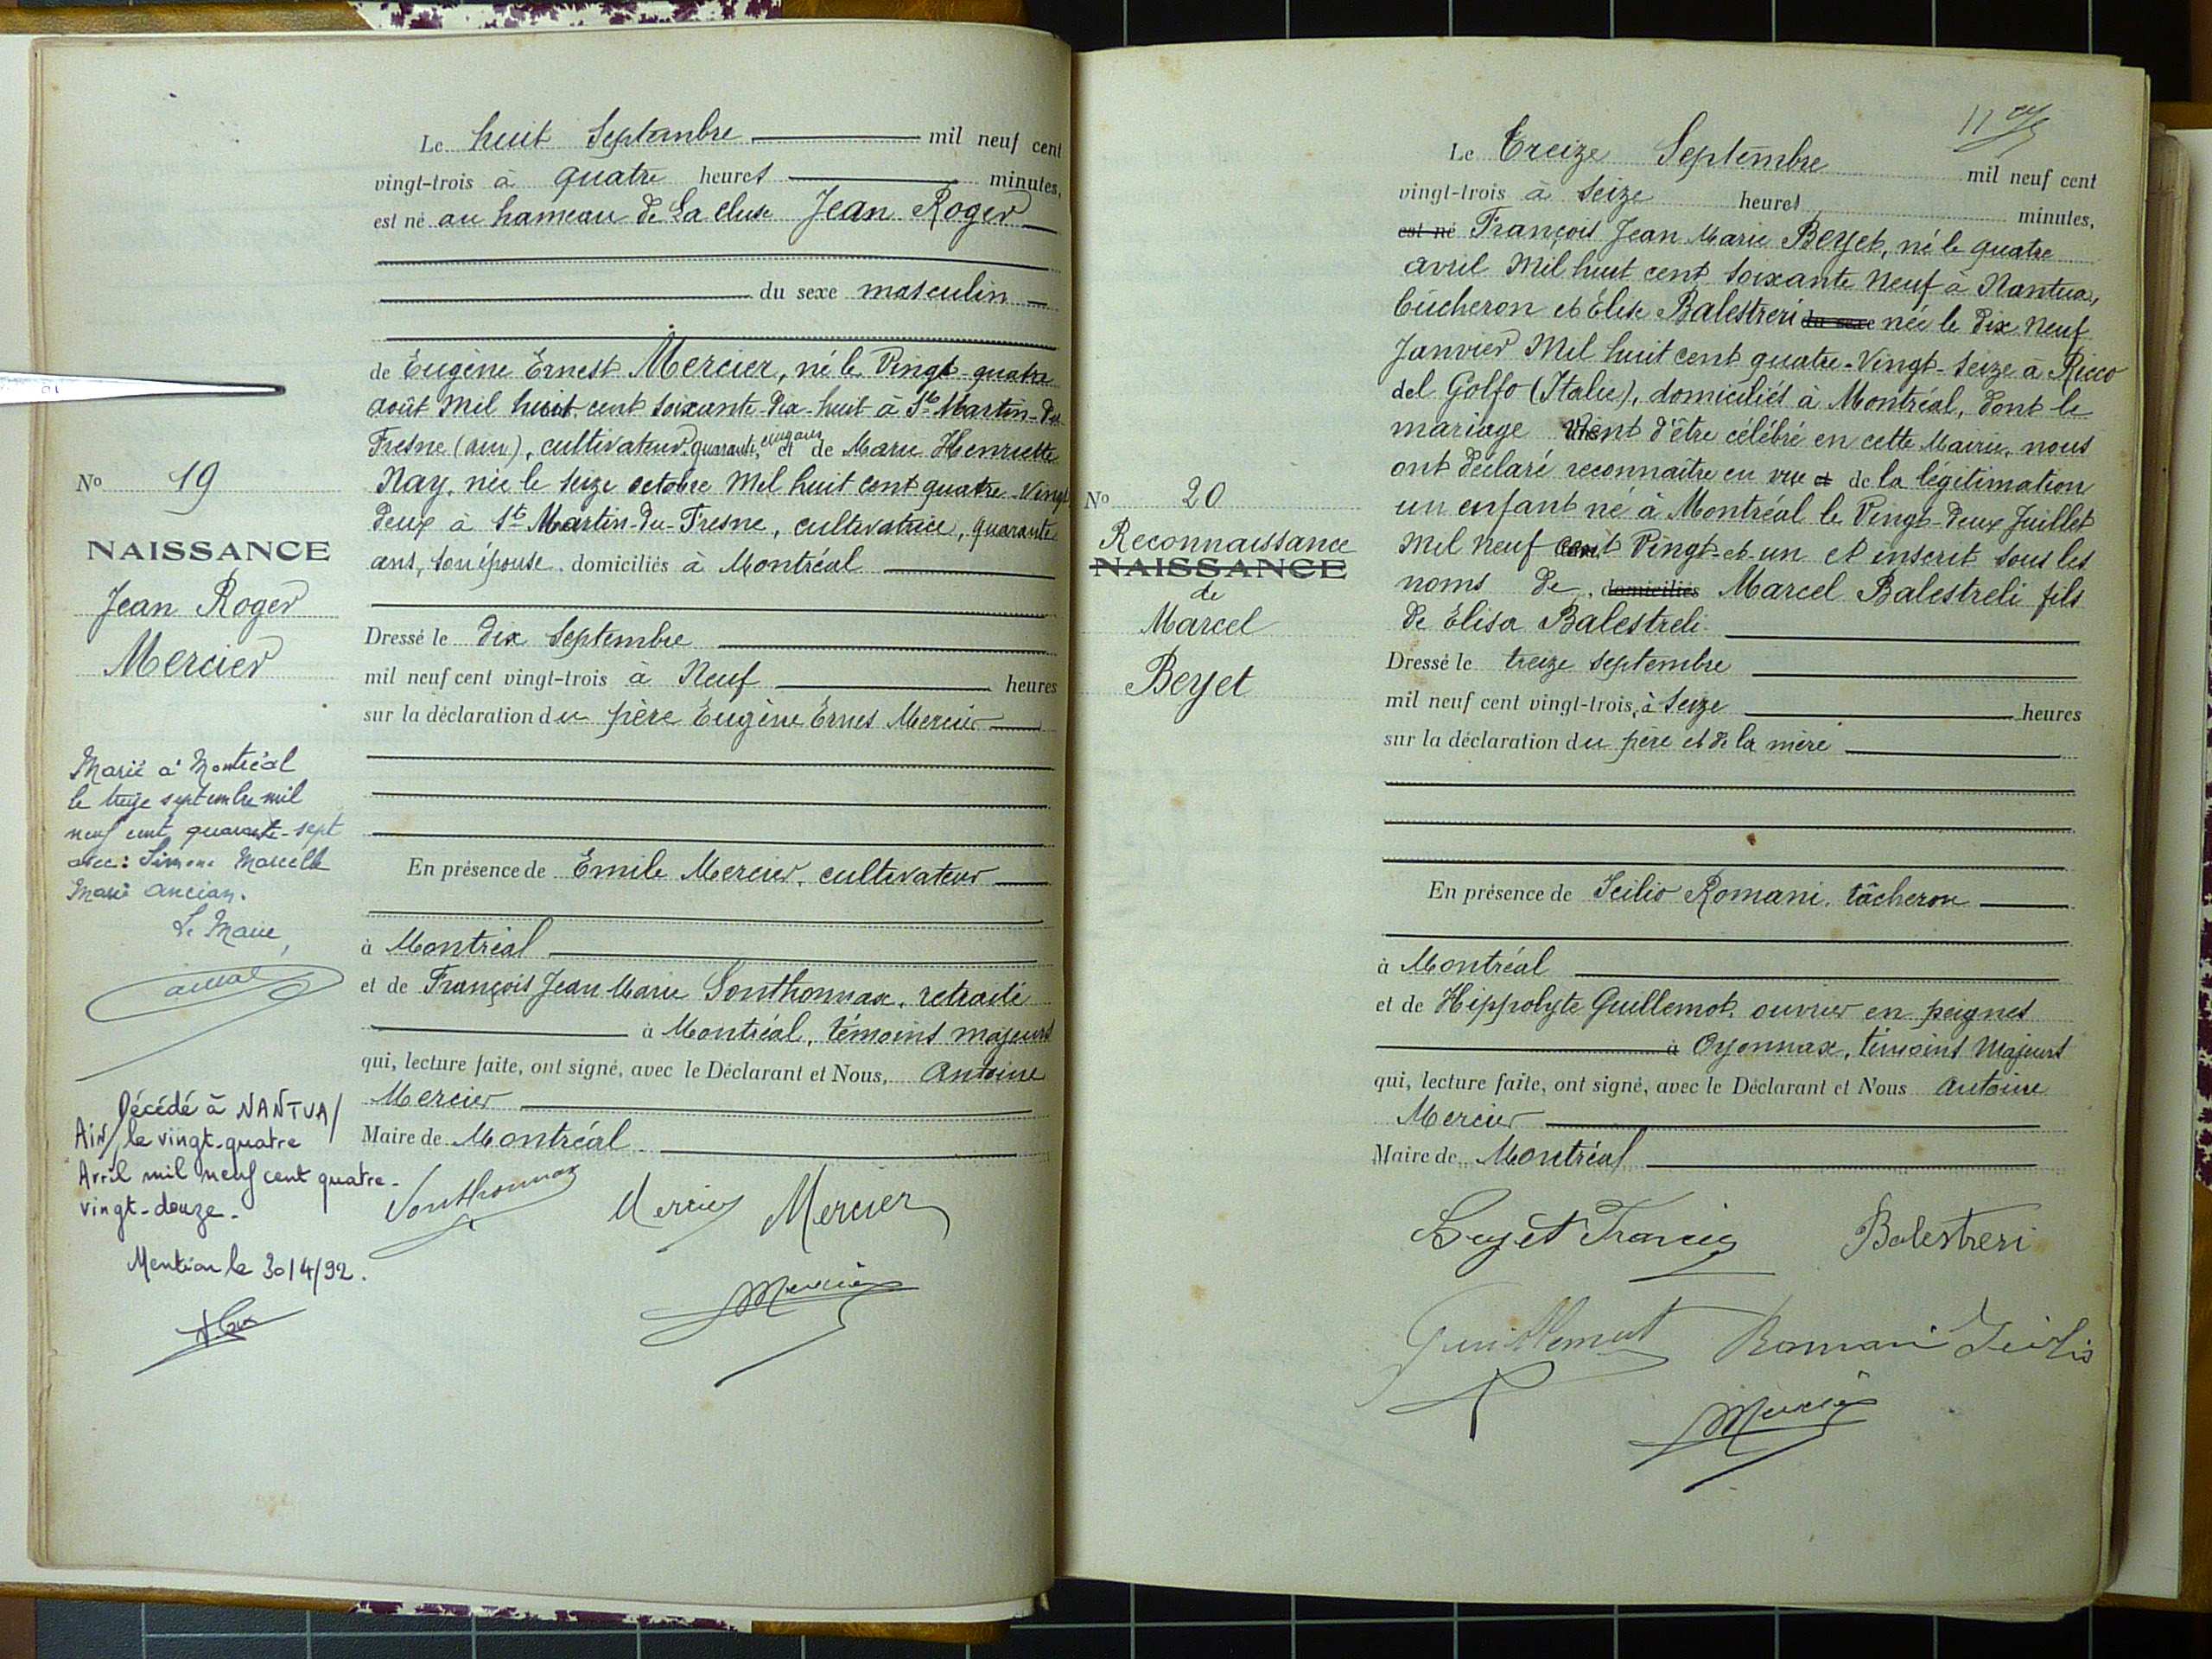 Le huit Septembre mil neuf cent
vingt-trois à quatre heures minutes,
est né au hameau de La Cluse Jean Roger
du sexe masculin
de Eugène Ernest Mercier, né le Vingt-quatre
août Mil huit cent soixante-dix-huit à St Martin-du
Fresne (ain), cultivateur, quarante cinq ans et de Marie Henriette
Nay, née le seize octobre Mil huit cent quatre-Vingt
deux à St Martin-du-Fresne, cultivatrice, quarante
ans, son épouse, domiciliés à Montréal
Dressé le dix Septembre
mil neuf cent vingt-trois à Neuf heures
sur la déclaration du père Eugène Ernes Mercier
En présence de Emile Mercier, cultivateur
à Montréal
et de François Jean Marie Sonthonnax, retraité
à Montréal, témoins majeurs
qui, lecture faite, ont signé, avec le Déclarant et Nous, Antoine
Mercier
Maire de Montréal
Sonthonnax Mercier Mercier
Mercier
No 19
NAISSANCE
Jean Roger
Mercier
Marié à Montréal
le treize septembre mil
neuf cent quarante-sept
avec : Simone Marcelle
Marie Ancian.
Le Maire,
Décédé à NANTUA/
Ain/ le vingt-quatre
Avril mil neuf cent quatre-
vingt-douze.
Mention le 30/4/92.
11
Le Treize Septembre mil neuf cent
vingt-trois à seize heures minutes,
est né François Jean Marie Beyet, né le quatre
avril Mil huit cent soixante Neuf à Nantua,
bûcheron et Élise Balestreri du sexe née le dix Neuf
Janvier Mil huit cent quatre-Vingt-seize à Ricco
del Golfo (Italie), domiciliés à Montréal, dont le
mariage vient d'être célébré en cette Mairie, nous
ont déclaré reconnaître en vue et de la légitimation
un enfant né à Montréal le Vingt-deux Juillet
Mil neuf cent Vingt-et-un et inscrit sous les
noms de domiciliés Marcel Balestreli fils
de Elisa Balestreli
Dressé le treize septembre
mil neuf cent vingt-trois, à seize heures
sur la déclaration du père et de la mère
En présence de Scilio Romani, tâcheron
à Montréal
et de Hippolyte Guillemot, ouvrier en peignes
à Oyonnax, témoins Majeurs
qui, lecture faite, ont signé, avec le Déclarant et Nous Antoine
Mercier
Maire de Montréal
Beyet Francis Balestreri
Guillemot Romani Scilio
Mercier
No 20
Reconnaissance
NAISSANCE
de
Marcel
Beyet